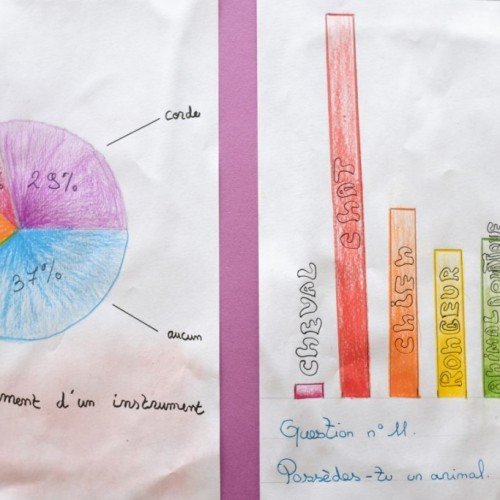 corde
29%
%
37%
aucun
ment d'un instrument
CHEVAL
CHAT
CHIEN
RONGEUR
Question n° 11.
Possèdes-tu un animal.